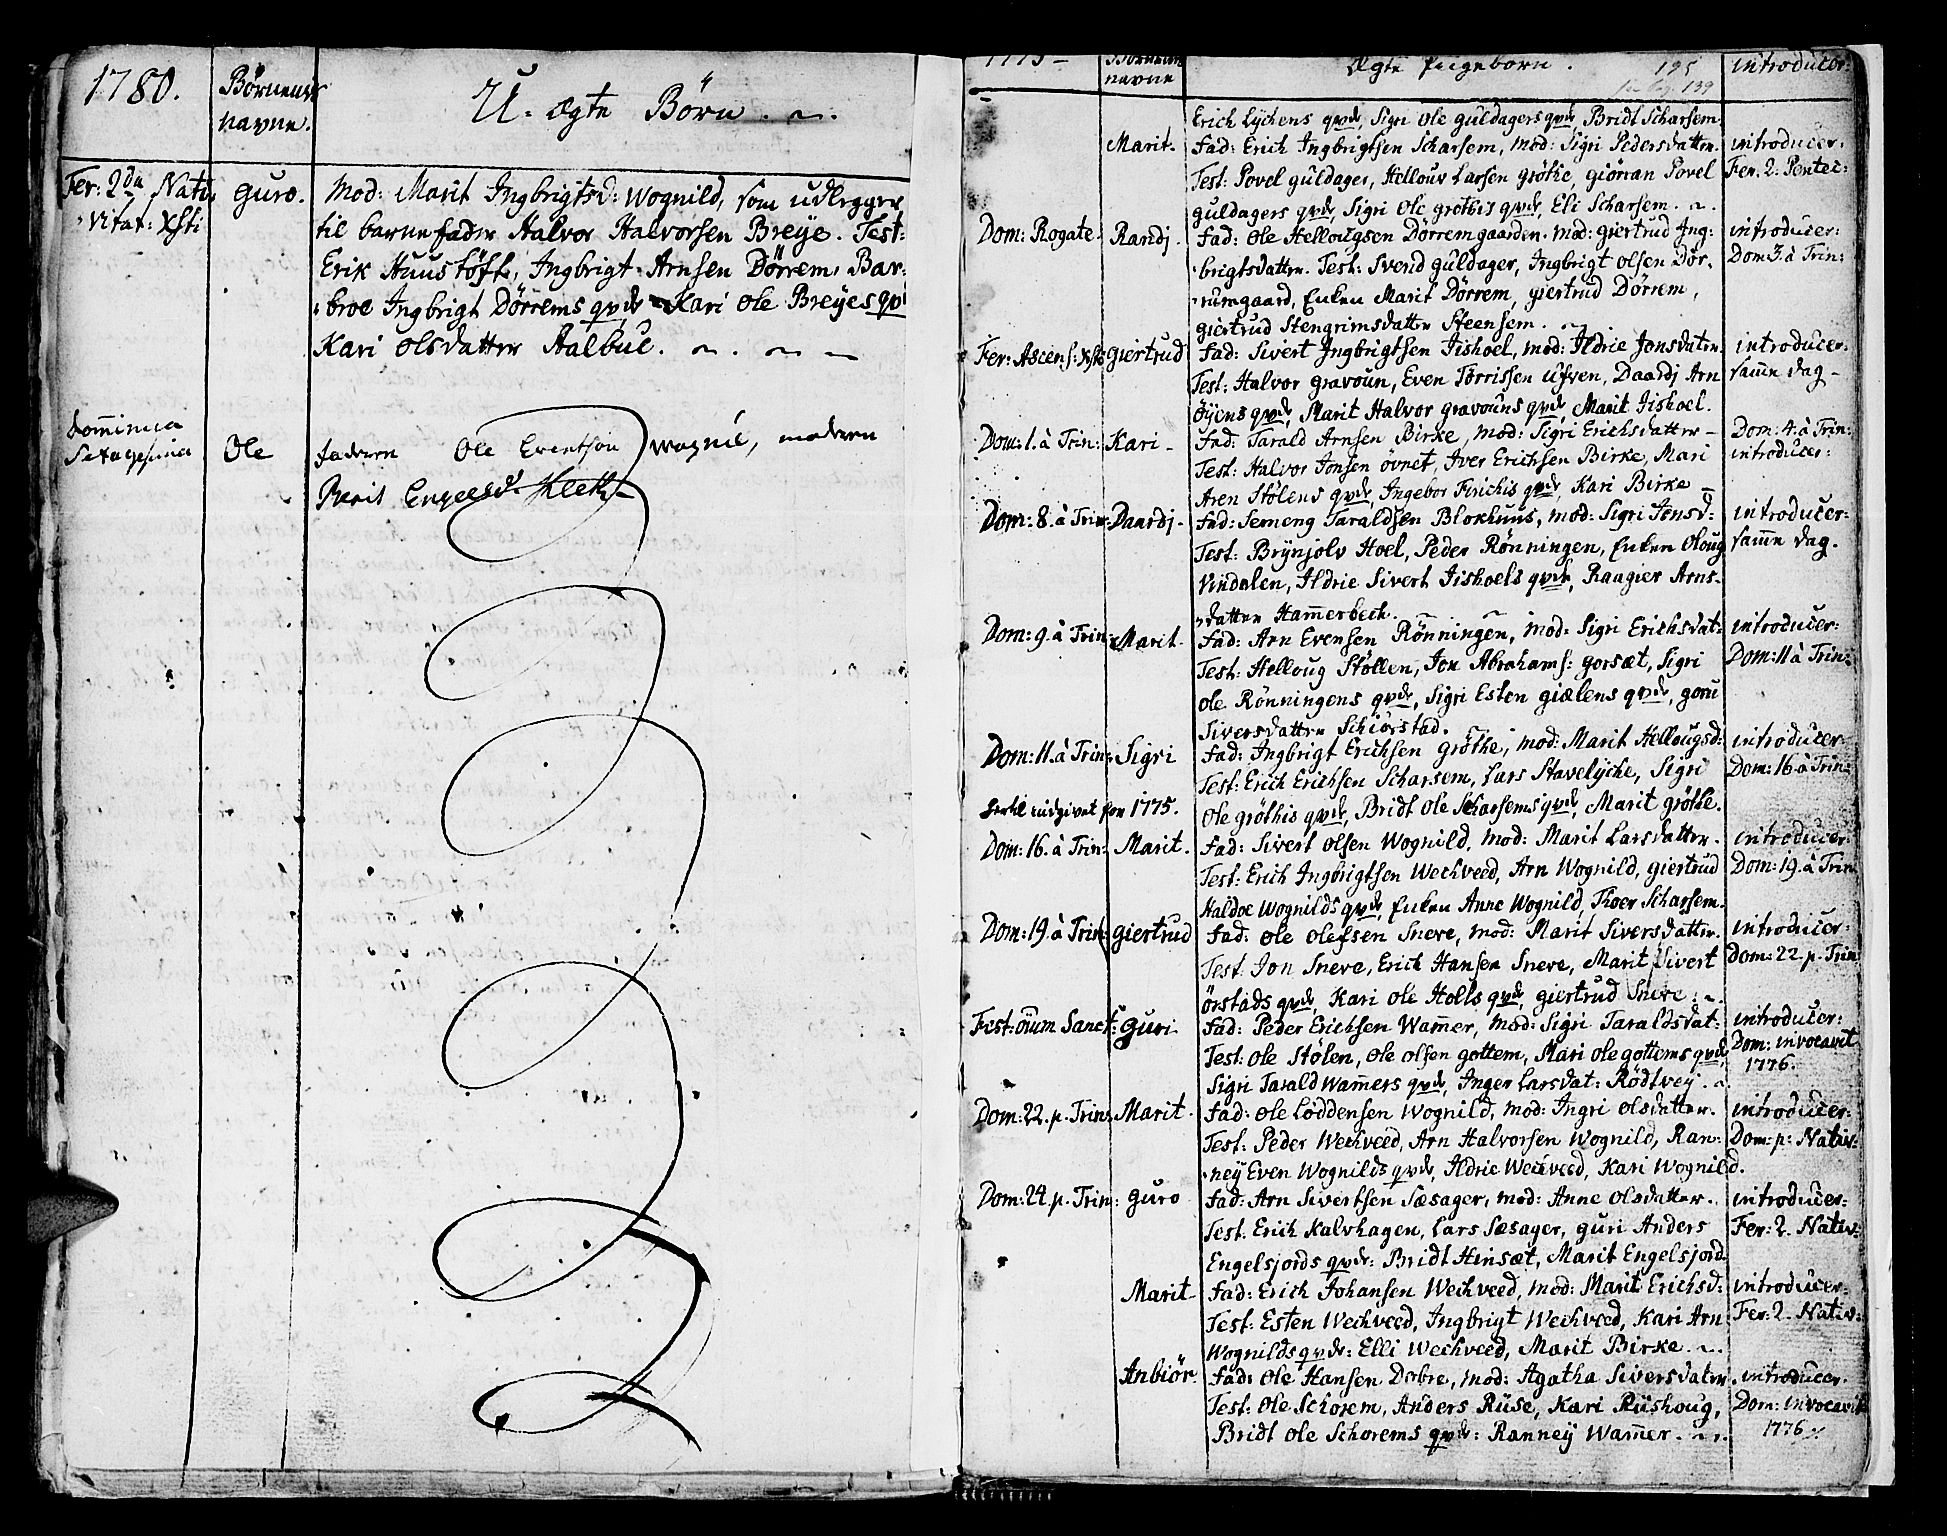 1780.
Børnenes
navne.
U-ægte Børn.
Fer: 2da Nati
vitat: Xsti
Guro.
Mod: Marit Ingbrigtsd: Wognild, som udlegger
til barnefader Halvor Halvorsen Breye. Test:
Erik Huustøft, Ingbrigt Arnsen Dørrem, Bar:
broe Ingbrigt Dørrems qvde Kari Ole Breyes qv:
Kari Olsdatter Aalbue.
Dominica
Sexagesima
Ole
faderen Ole Evertson Wognil, moderen
Berit Engelsd: Kleth
1775
Børnenes
navne
Ægte Pigebørn.
195
139
introducer:
Erich Lychens qvde, Sigri Ole Guldagers qvde Bridt Scharsem
Marit.
Fad: Erich Ingbrigtsen Scharsem, mod: Sigri Pedersdatter.
Test: Povel Guldager, Hellouv Larsen Grøthe, Giørran Povel
Guldagers qvde, Sigri Ole Grøthis qvde, Eli Scharsem.
introducer:
Fer. 2. Pentec:
Dom: Rogate.
Randj.
Fad: Ole Hellougsen Dørremgaarden. mod: Giertrud Ing:
brigtsdatter. Test: Svend Guldager, Ingbrigt Olsen Dør,
rumgaard, Enken Marit Dørrem, Giertrud Dørrem,
Giertrud Stengrimsdatter Steensem.
introducer:
Dom 3. à Trin:
Fer: Ascens: Xsti
Giertrud
Fad: Sivert Ingbrigtsen Iishoel, mod: Ildrie Jonsdater.
Test: Halvor Gravoun, Even Tørrissen Ufven, Daardj Arn
Øyens qvde, Marit Halvor Gravouns qvde, Marit Iishoel.
introducer:
samme dag
Dom: 1. à Trin:
Kari
Fad: Tarald Arnsen Birke, mod: Sigri Erichsdatter
Test: Halvor Jonsen Øvnet, Iver Erichsen Birke, Mari
Aren Stølens qvde, Ingebor Firichis qvde, Kari Birke
Dom: 4. à Trin:
introducer:
Dom: 8. à Trin:
Daardj.
Fad: Semeng Taraldsen Blokhuus, mod: Sigri Jonsd:
Test: Brynjolv Hoel, Peder Rønningen, Enken Oloug
Vindalen, Ildrie Sivert Iishoels qvde, Raagier Arns,
datter Hammerbech.
introducer:
samme dag.
Dom: 9. à Trin:
Marit.
Fad: Arn Evensen Rønningen, mod: Sigri Erichsdat:
Test: Helloug Støllen, Jon Abrahams: Gorsæt, Sigri
Ole Rønningens qvde, Sigri Esten Giælens qvde, Goru
Siversdatter Schiørstad.
introducer:
Dom: 11 à Trin:
Dom: 11. à Trin:
Sigri
Fad: Ingbrigt Erichsen Grøthe, mod: Marit Hellougsd:
Test: Erich Erichsen Scharsem, Lars Stavelyche, Sigri
Ole Grøthis qvde, Bridt Ole Scharsems qvde, Marit Grøthe.
introducer:
Dom: 16. à Trin:
hertil indgivet for 1775.
Dom: 16. à Trin:
Marit.
Fad: Sivert Olsen Wognild, mod: Marit Larsdatter.
Test: Erich Ingbrigtsen Wechveed, Arn Wognild, Giertrud
Haldoe Wognilds qvde, Enken Anne Wognild, Thoer Scharsem.
introducer:
Dom: 19. à Trin
Dom: 19. à Trin:
Giertrud
Fad: Ole Olefsen Sneve, mod: Marit Siversdatter.
Test: Jon Sneve, Erich Hansen Sneve, Marit Sivert
Ørstads qvde, Kari Ole Holls qvde, Giertrud Sneve:
introducer:
Dom: 22. p. Trin
Fest: Oium Sanct:
Guri
Fad: Peder Erichsen Wammer, mod: Sigri Taraldsdat:
Test: Ole Stølen, Ole Olsen Gottem, Mari Ole Gottems qvde,
Sigri Tarald Wammers qvde, Inger Larsdat: Rødtvey.
introducer:
Dom: invocavit
1776.
Dom: 22. p. Trin:
Marit.
Fad: Ole Løddensen Wognild, mod: Ingri Olsdatter.
Test: Peder Wechveed, Arn Halvorsen Wognild, Ran:
ney Even Wognilds qvde, Ildrie Wechveed, Kari Wognild.
introducer:
Dom: p: Nativ:
Dom: 24. p. Trin:
Guro
Fad: Arn Sivertsen Sæsager, mod: Anne Olsdatter.
Test. Erich Kalvhagen, Lars Sæsager, Guri Anders
Engelsjords qvde: Bridt Hinsæt, Marit Engelsjord.
introducer:
Fer: 2. Nativ:
Marit
Fad: Erich Johansen Wechveed, mod: Marit Erichsd:
Test: Esten Wechveed, Ingbrigt Wechveed, Kari Arn
Wognilds qvde: Elli Wechveed, Marit Birke.
introducer:
Fer: 2. Nativ:
Anbiør.
Fad: Ole Hansen Dobre, mod: Agatha Siversdater
Test: Ole Schorem, Anders Ruse, Kari Riishoug,
Bridt Ole Schorems qvde: Ranney Wammer.
introducer.
Dom: invocavit
1776.